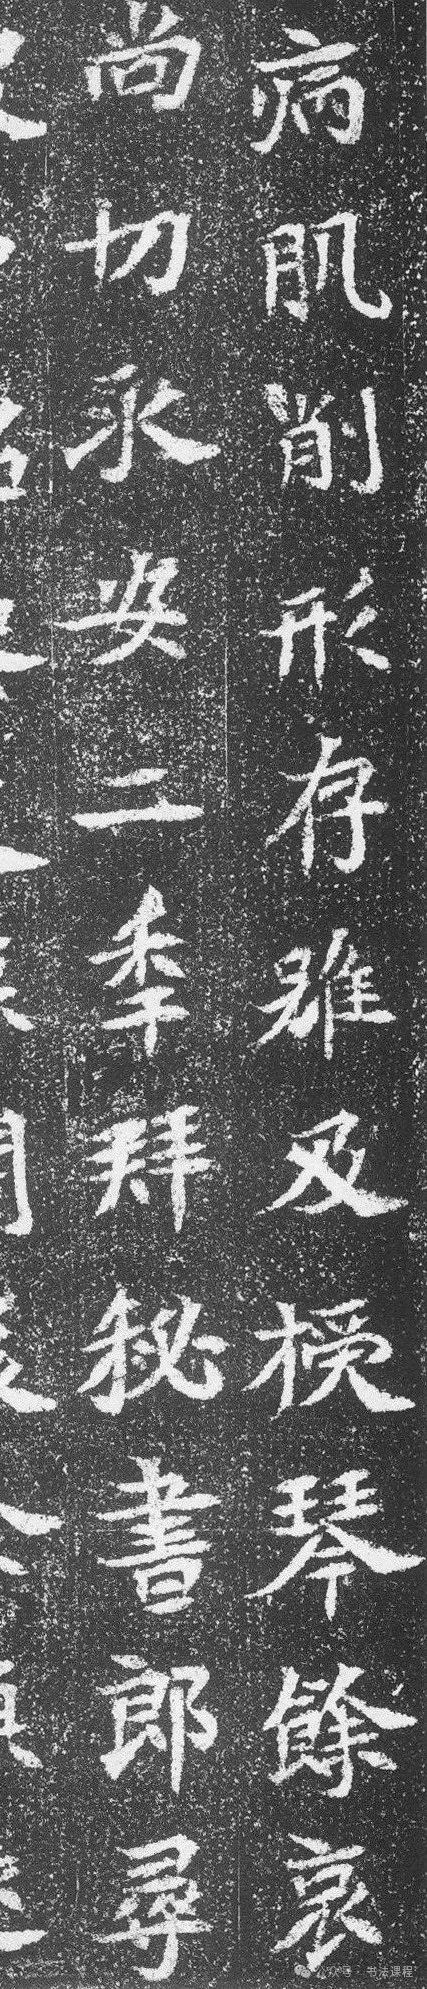 病肌削形存雖及援琴餘哀
尚切永安二秊拜秘書郎尋
公众号 · 书法课程